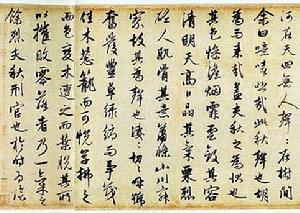 河在天四無人聲々在樹間
余曰噫嘻悲哉此秋聲也胡
為而來哉盖夫秋之為狀也
其色慘淡烟霏雲斂其容
清明天高日晶其氣慄冽
砭人肌骨其意蕭條山川寂
寥故其為聲也凄々切々呼號
奮發豐草綠縟而爭茂
佳木葱蘢而可悅草拂之
而色變木遭之而葉脫其所
以摧敗零落者乃一氣之
餘烈夫秋刑官也於時為陰